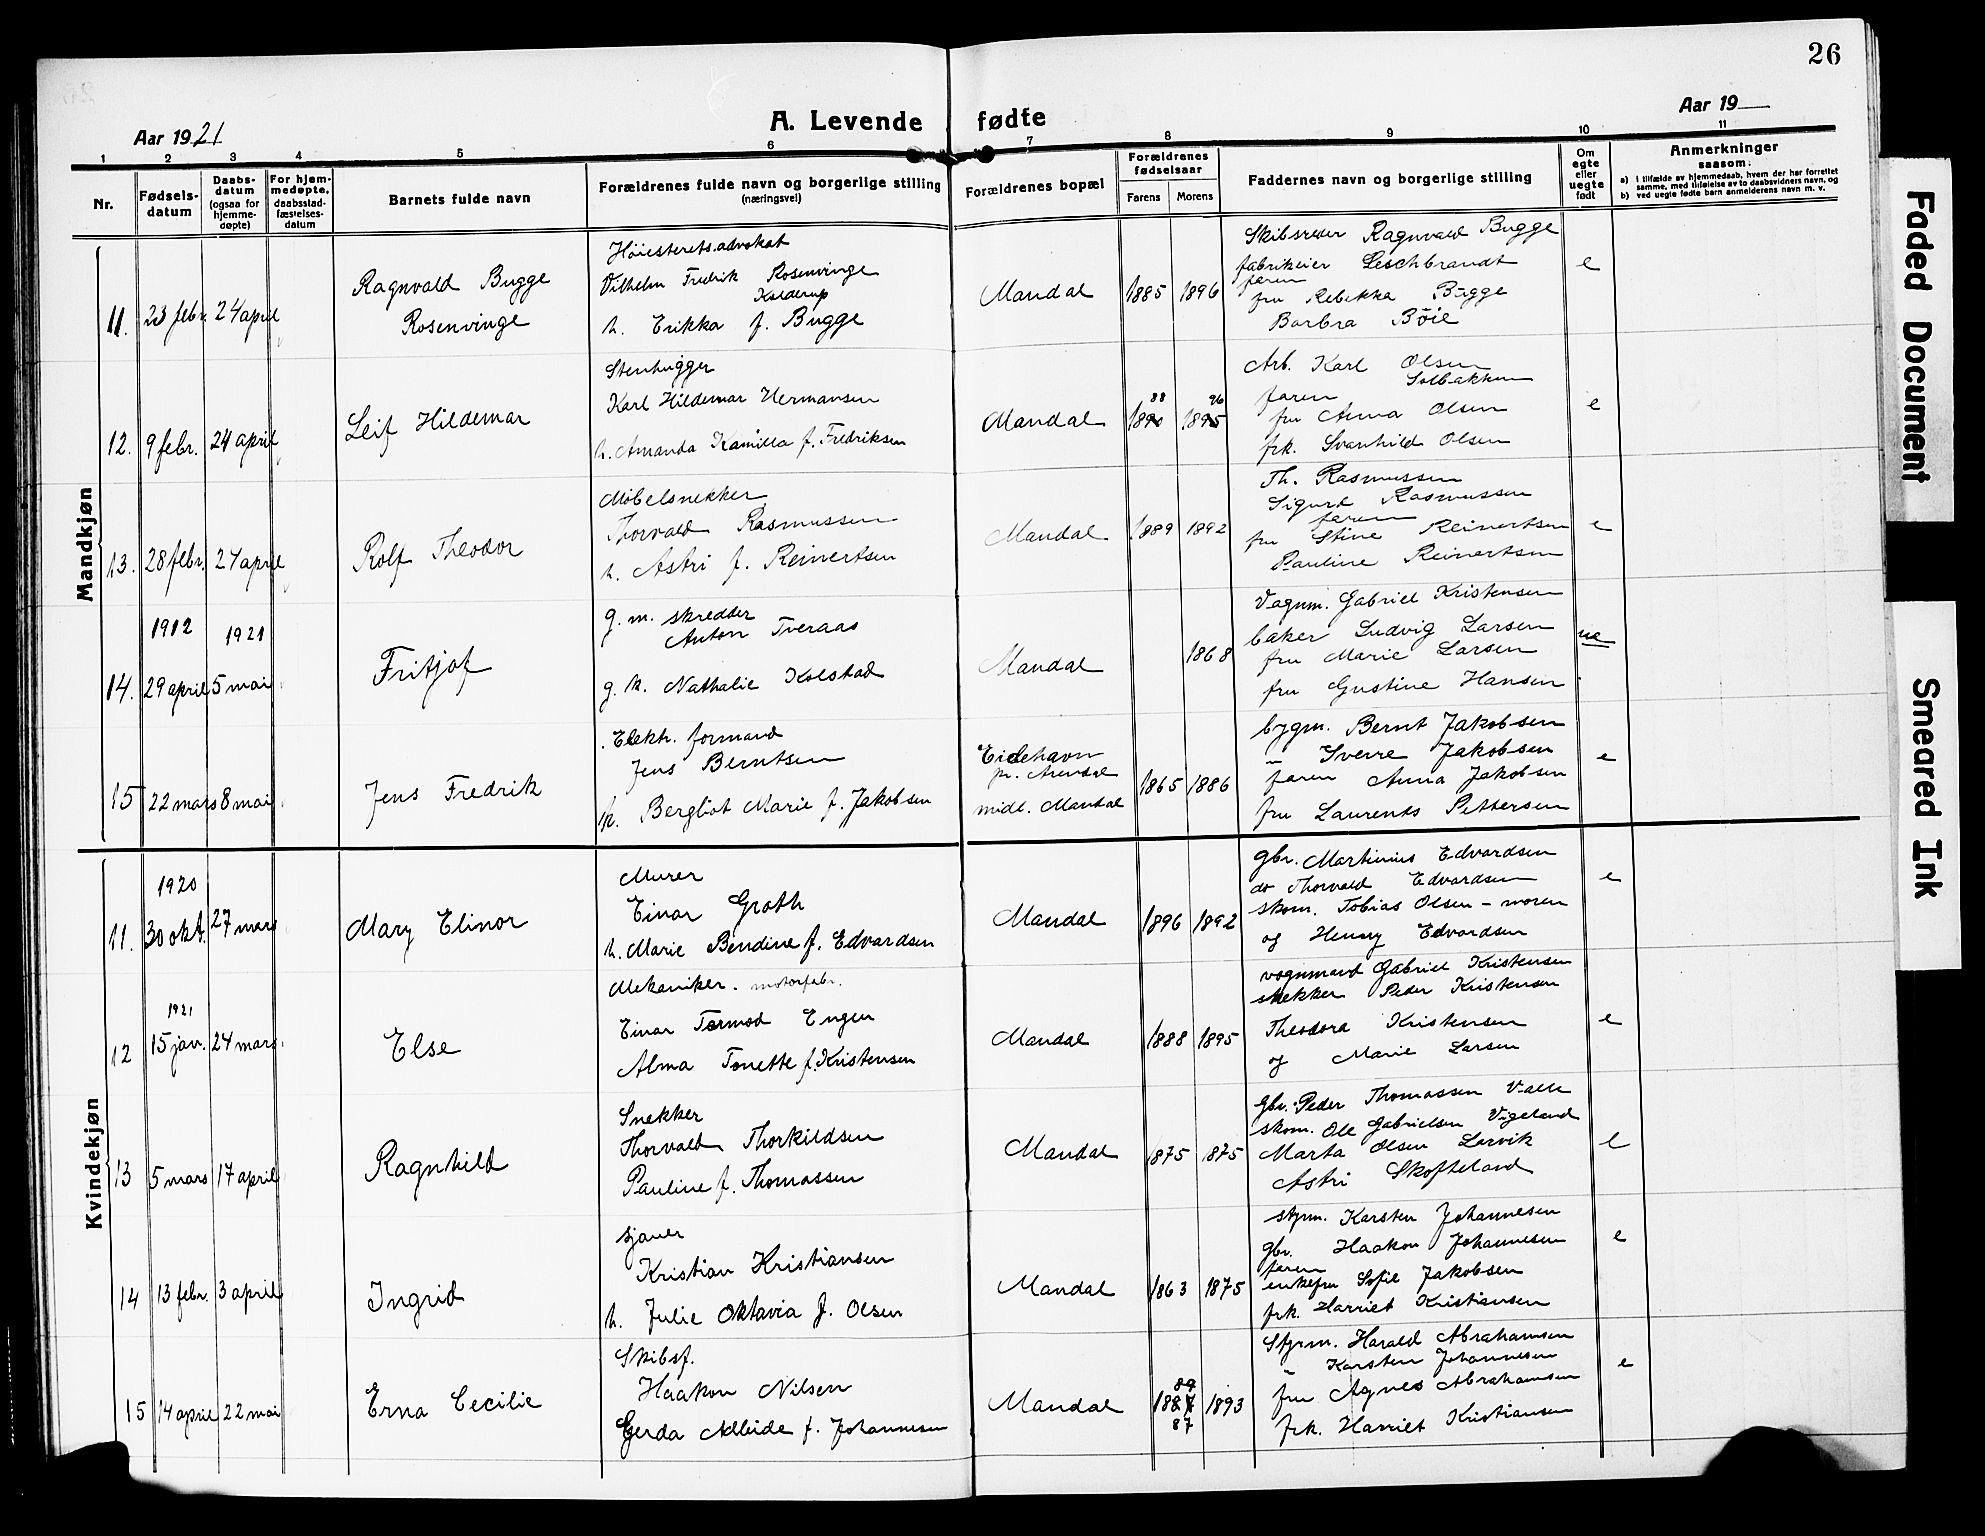 26
A. Levende fødte
Aar 1921
Aar 19
1 2 3 4 5 6 7 8 9 10 11
Nr.
Fødsels-
datum
Daabs-
datum
(ogsaa for
hjemme-
døpte)
For hjem-
medøpte,
daabsstad-
fæstelses-
datum
Barnets fulde navn
Forældrenes fulde navn og borgerlige stilling
(næringsvei)
Forældrenes bopæl
Forældrenes
fødselsaar
Farens Morens
Faddernes navn og borgerlige stilling
Om
egte
eller
uegte
født
Anmerkninger
saasom:
a) i tilfælde av hjemmedaab, hvem der har forrettet
samme, med tilføielse av to daabsvidners navn, og
b) ved uegte fødte barn anmelderens navn m. v.
Mandkjøn
11. 23 febr. 24 april
Ragnvald Bugge
Rosenvinge
Høiesteretsadvokat
Vilhelm Fredrik Rosenvinge
Kolderup
h. Erikka f. Bugge
Mandal 1885 1896
Skibsreder Ragnvald Bugge
fabrikeier Leschbrandt
faren
fru Rebekka Bugge
Barbra Bøie
e
12. 9 febr. 24 april
Leif Hildemar
Stenhugger
Karl Hildemar Hermansen
h. Amanda Kamilla f. Fredriksen
Mandal
88 96
1890 1895
Arb. Karl Olsen
Solbakken
faren
fru Anna Olsen
frk. Svanhild Olsen
e
13. 28 febr. 24 april
Rolf Theodor
Møbelsnekker
Thorvald Rasmussen
h. Astri f. Reinertsen
Mandal 1889 1892
Th. Rasmussen
Sigurd Rasmussen
faren
fru Stine Reinertsen
Pauline Reinertsen
e
1912 1921
14. 29 april 5 mai
Fritjof
g. m. skredder
Anton Tveraas
g. k. Nathalie Kolstad
Mandal 1868
Vognm. Gabriel Kristensen
baker Ludvig Larsen
fru Marie Larsen
fru Gustine Hansen
ue
15 22 mars 8 mai
Jens Fredrik
Elektr. formand
Jens Berntsen
h. Bergliot Marie f. Jakobsen
Eidehavn
pr. Arendal
midl. Mandal
1865 1886
bygm. Bernt Jakobsen
" Sverre Jakobsen
faren Anna Jakobsen
fru Laurents Pettersen
e
Kvindekjøn
1920
11. 30 okt. 27 mars
Mary Elinor
Murer
Einar Groth
h. Marie Bendine f. Edvardsen
Mandal 1896 1892
gbr. Martinius Edvardsen
do Thorvald Edvardsen
skom. Tobias Olsen - moren
og Henny Edvardsen
e
1921
12 15 jan. 24 mars.
Else
Mekaniker. motorfabr.
Einar Tormod Engen
Alma Tonette f. Kristensen
Mandal 1888 1895
vognmand Gabriel Kristensen
snekker Peder Kristensen
Theodora Kristensen
og Marie Larsen
e
13 5 mars 17 april
Ragnhild
Snekker
Thorvald Thorkildsen
Pauline f. Thomassen
Mandal 1875 1875
Gbr. Peder Thomassen Valle
skom. Ole Gabrielsen Vigeland
Marta Olsen Larvik
Astri Skofteland
e
14 13 febr. 3 april
Ingrid
sjauer
Kristian Kristiansen
h. Julie Oktavia f. Olsen
Mandal 1863 1875
styrm. Karsten Johannesen
gbr. Haakon Johannesen
faren
enkefru Sofie Jakobsen
frk. Harriet Kristiansen
e
15 14 april 22 mai
Erna Cecilie
Skibsf.
Haakon Nilsen
Gerda Adleide f. Johannesen
Mandal
89
1887 1893
87
Styrm. Harald Abrahamsen
" Karsten Johannesen
fru Agnes Abrahamsen
frk. Harriet Kristiansen
e
Faded Document
Smeared Ink